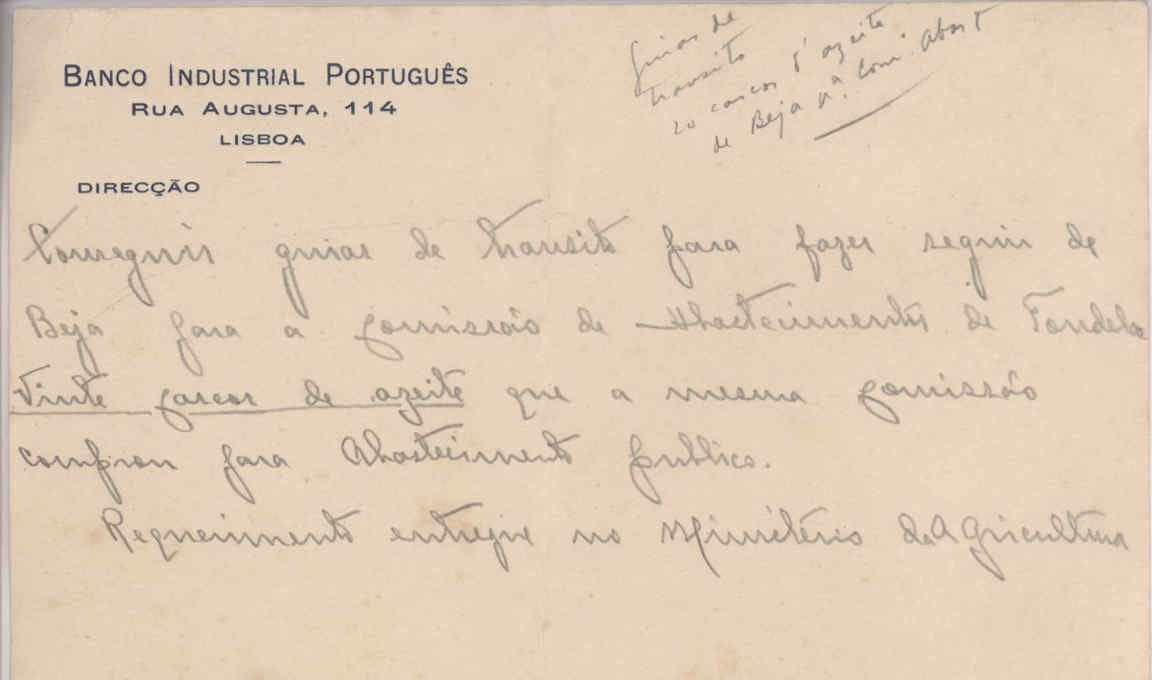 BANCO INDUSTRIAL PORTUGUÊS
RUA AUGUSTA, 114
LISBOA
DIRECÇÃO
guias de
transito
20 cascos d'azeite
de Beja pª. Com. Abast
Conseguir guias de transito para fazer seguir de
Beja para a Comissão de Abastecimentos de Tondela
vinte cascos de azeite que a mesma Comissão
comprou para Abastecimento publico.
Requerimento entregue no Ministério da Agricultura